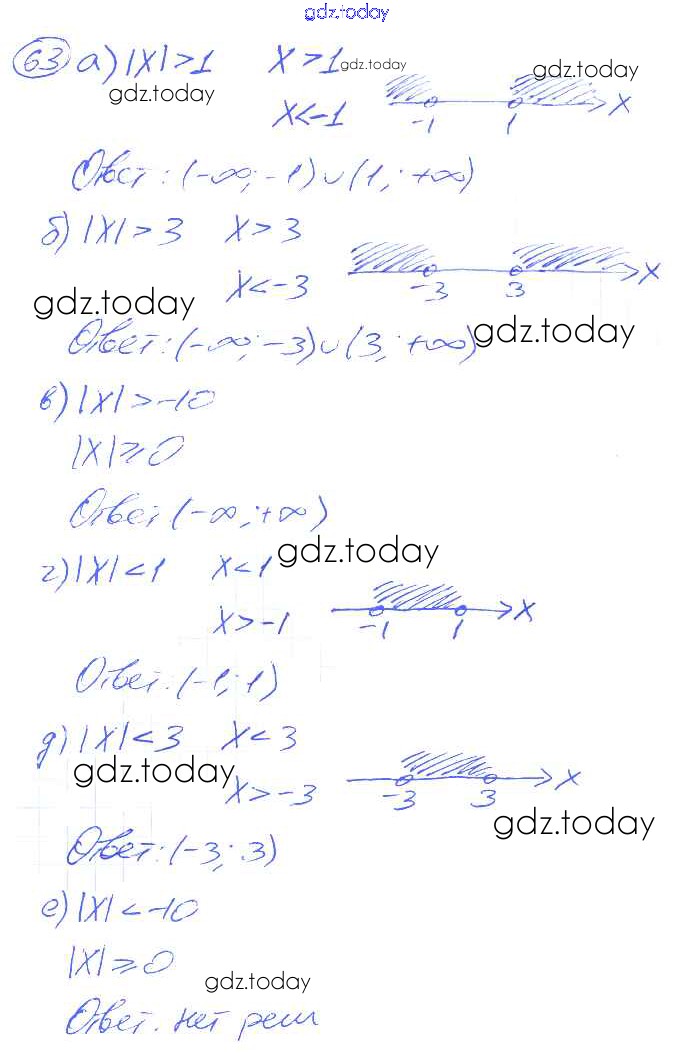 gdz.today
63 а) |x|>1 x>1 gdz.today
gdz.today gdz.today
x<-1 -1 1 x
Ответ: (-∞; -1)∪(1; +∞)
б) |x|>3 x>3
x<-3 -3 3 x
gdz.today
Ответ: (-∞; -3)∪(3; +∞) gdz.today
в) |x|>-10
|x|⩾0
Ответ (-∞; +∞)
gdz.today
г) |x|<1 x<1
x>-1 -1 1 x
Ответ: (-1; 1)
д) |x|<3 x<3
gdz.today
x>-3 -3 3 x
gdz.today
Ответ: (-3; 3)
е) |x|<-10
|x|⩾0
gdz.today
Ответ. нет реш